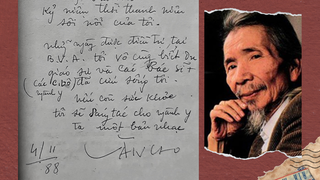 Kỷ niệm thời thanh niên
sôi nổi của tôi.
những ngày được điều trị tại
B.V.A. tôi vô cùng biết ơn
giáo sư và các Bác sĩ +
(các c.bộ ytá cứu sống tôi.
ngành y
nếu còn sức khỏe
tôi sẽ sáng tác cho ngành y
ta một bản nhạc
4/11
88
VĂNCAO